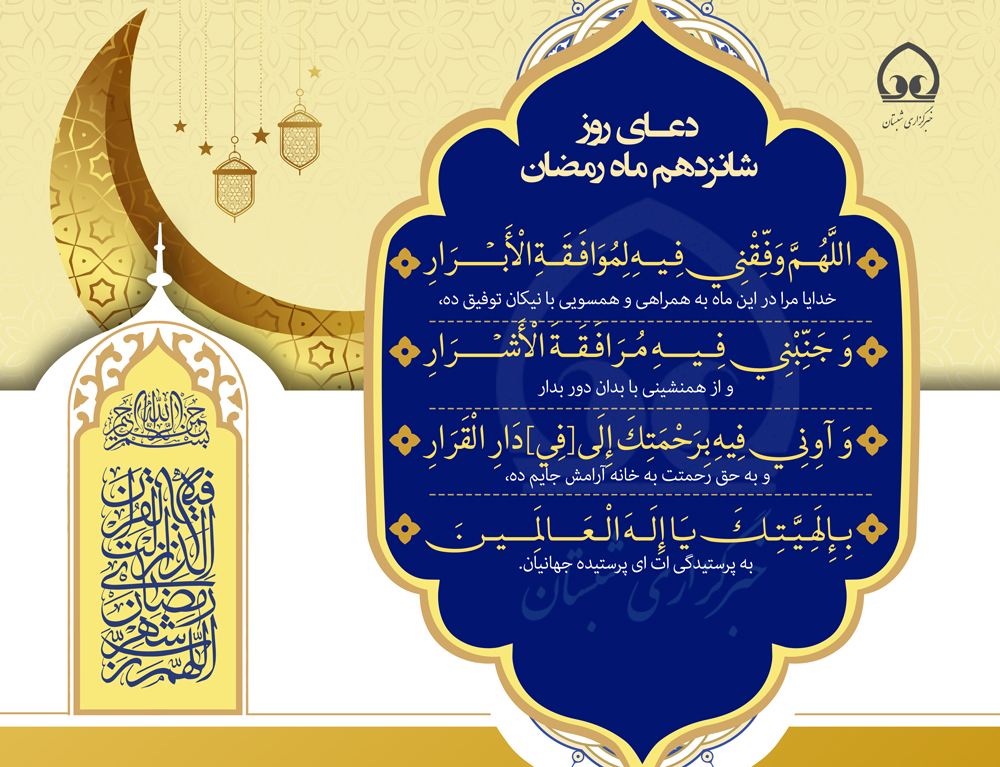 خبرگزاری شبستان
دعای روز
شانزدهم ماه رمضان
اللَّهُمَّ وَفِّقْنِي فِيهِ لِمُوَافَقَةِ الْأَبْرَارِ
خدایا مرا در این ماه به همراهی و همسویی با نیکان توفیق ده،
وَ جَنِّبْنِي فِيهِ مُرَافَقَةَ الْأَشْرَارِ
و از همنشینی با بدان دور بدار
وَ آوِنِي فِيهِ بِرَحْمَتِكَ إِلَى [فِي] دَارِ الْقَرَارِ
و به حق رحمتت به خانه آرامش جایم ده،
بِإِلَهِيَّتِكَ يَا إِلَهَ الْعَالَمِينَ
به پرستیدگی ات ای پرستیده جهانیان.
خبرگزاری شبستان
بسم الله الرحمن الرحیم
اللهم رب شهر
رمضان
الذی انزلت
فیه القرآن